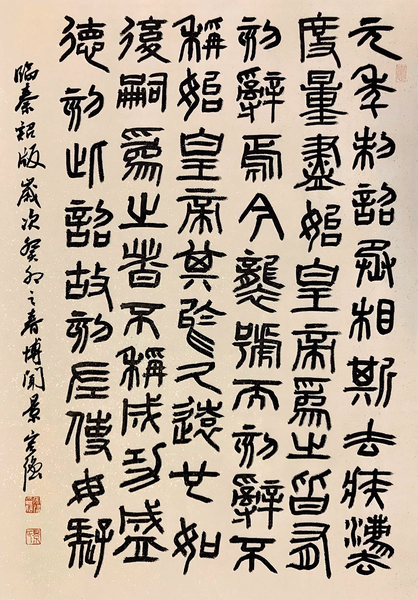 元年制詔丞相斯去疾灋
度量盡始皇帝爲之皆有
刻辭焉今襲號而刻辭不
稱始皇帝其於久遠也如
後嗣爲之者不稱成功盛
德刻此詔故刻左使毋疑
臨秦詔版歲次癸卯之春博景